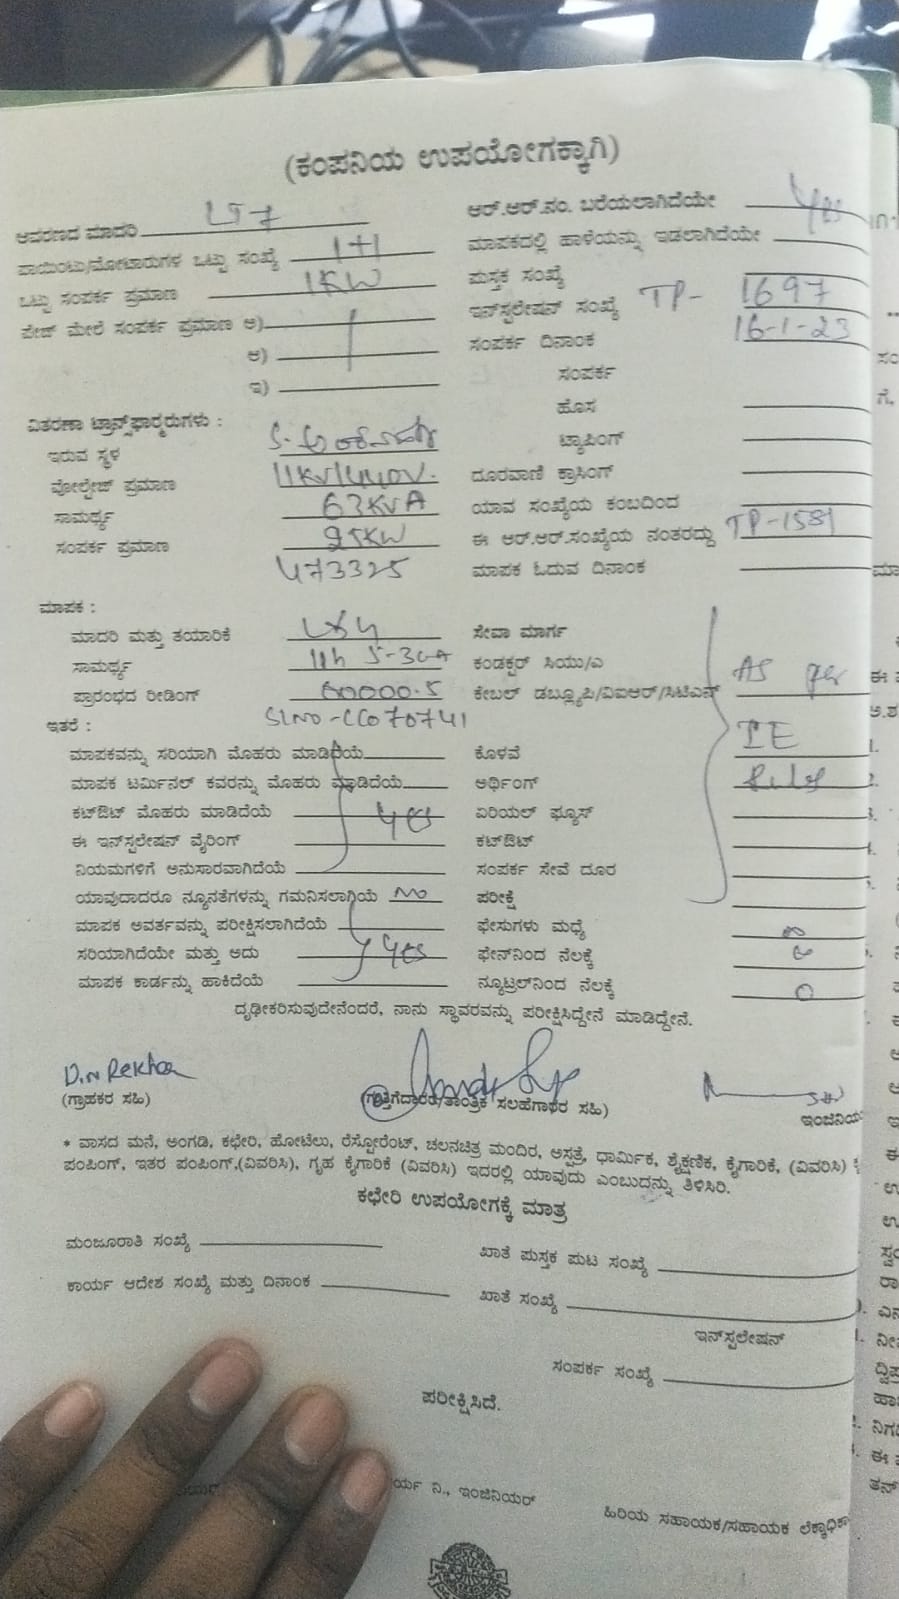 (ಕಂಪನಿಯ ಉಪಯೋಗಕ್ಕಾಗಿ)
ಆವರಣದ ಮಾದರಿ LT7
ಪಾಯಿಂಟು/ಮೋಟಾರುಗಳ ಒಟ್ಟು ಸಂಖ್ಯೆ 1+1
ಒಟ್ಟು ಸಂಪರ್ಕ ಪ್ರಮಾಣ 1KW
ಪೇಜ್ ಮೇಲೆ ಸಂಪರ್ಕ ಪ್ರಮಾಣ ಅ)
ಆ)
ಇ)
ವಿತರಣಾ ಟ್ರಾನ್ಸ್‌ಫಾರ್‍ಮರುಗಳು :
ಇರುವ ಸ್ಥಳ
ವೋಲ್ಟೇಜ್ ಪ್ರಮಾಣ 11KV/440V.
ಸಾಮರ್ಥ್ಯ 63KVA
ಸಂಪರ್ಕ ಪ್ರಮಾಣ 25KW
473325
ಮಾಪಕ :
ಮಾದರಿ ಮತ್ತು ತಯಾರಿಕೆ
ಸಾಮರ್ಥ್ಯ 5-30A
ಪ್ರಾರಂಭದ ರೀಡಿಂಗ್ 00000.5
SLNO-CC070741
ಇತರೆ :
ಮಾಪಕವನ್ನು ಸರಿಯಾಗಿ ಮೊಹರು ಮಾಡಿದೆಯೆ
ಮಾಪಕ ಟರ್ಮಿನಲ್ ಕವರನ್ನು ಮೊಹರು ಮಾಡಿದೆಯೆ
ಕಟ್‌ಔಟ್ ಮೊಹರು ಮಾಡಿದೆಯೆ yes
ಈ ಇನ್‌ಸ್ಟಲೇಷನ್ ವೈರಿಂಗ್
ನಿಯಮಗಳಿಗೆ ಅನುಸಾರವಾಗಿದೆಯೆ
ಯಾವುದಾದರೂ ನ್ಯೂನತೆಗಳನ್ನು ಗಮನಿಸಲಾಗಿಯೆ NO
ಮಾಪಕ ಅವರ್ತವನ್ನು ಪರೀಕ್ಷಿಸಲಾಗಿದೆಯೆ
ಸರಿಯಾಗಿದೆಯೇ ಮತ್ತು ಅದು yes
ಮಾಪಕ ಕಾರ್ಡನ್ನು ಹಾಕಿದೆಯೆ
ಆರ್.ಆರ್.ನಂ. ಬರೆಯಲಾಗಿದೆಯೇ Yes
ಮಾಪಕದಲ್ಲಿ ಹಾಳೆಯನ್ನು ಇಡಲಾಗಿದೆಯೇ
ಪುಸ್ತಕ ಸಂಖ್ಯೆ
ಇನ್‌ಸ್ಟಲೇಷನ್ ಸಂಖ್ಯೆ TP- 1697
ಸಂಪರ್ಕ ದಿನಾಂಕ 16-1-23
ಸಂಪರ್ಕ
ಹೊಸ
ಟ್ಯಾಪಿಂಗ್
ದೂರವಾಣಿ ಕ್ರಾಸಿಂಗ್
ಯಾವ ಸಂಖ್ಯೆಯ ಕಂಬದಿಂದ
ಈ ಆರ್.ಆರ್.ಸಂಖ್ಯೆಯ ನಂತರದ್ದು TP-1581
ಮಾಪಕ ಓದುವ ದಿನಾಂಕ
ಸೇವಾ ಮಾರ್ಗ
ಕಂಡಕ್ಟರ್ ಸಿಯು/ಎ As per
ಕೇಬಲ್ ಡಬ್ಲ್ಯೂಪಿ/ವಿಐಆರ್/ಸಿಟಿಎಸ್
ಕೊಳವೆ IE
ಅರ್ಥಿಂಗ್ Rules
ಏರಿಯಲ್ ಫ್ಯೂಸ್
ಕಟ್‌ಔಟ್
ಸಂಪರ್ಕ ಸೇವೆ ದೂರ
ಪರೀಕ್ಷೆ
ಫೇಸುಗಳು ಮಧ್ಯೆ ∞
ಫೇನ್‌ನಿಂದ ನೆಲಕ್ಕೆ
ನ್ಯೂಟ್ರಲ್‌ನಿಂದ ನೆಲಕ್ಕೆ 0
ದೃಢೀಕರಿಸುವುದೇನೆಂದರೆ, ನಾನು ಸ್ಥಾವರವನ್ನು ಪರೀಕ್ಷಿಸಿದ್ದೇನೆ ಮಾಡಿದ್ದೇನೆ.
D.N Rekha
(ಗ್ರಾಹಕರ ಸಹಿ) (ಗುತ್ತಿಗೆದಾರರ/ತಾಂತ್ರಿಕ ಸಲಹೆಗಾರರ ಸಹಿ) ಇಂಜಿನಿಯ
* ವಾಸದ ಮನೆ, ಅಂಗಡಿ, ಕಛೇರಿ, ಹೋಟೆಲು, ರೆಸ್ಟೋರೆಂಟ್, ಚಲನಚಿತ್ರ ಮಂದಿರ, ಅಸ್ಪತ್ರೆ, ಧಾರ್ಮಿಕ, ಶೈಕ್ಷಣಿಕ, ಕೈಗಾರಿಕೆ, (ವಿವರಿಸಿ)
ಪಂಪಿಂಗ್, ಇತರ ಪಂಪಿಂಗ್,(ವಿವರಿಸಿ), ಗೃಹ ಕೈಗಾರಿಕೆ (ವಿವರಿಸಿ) ಇದರಲ್ಲಿ ಯಾವುದು ಎಂಬುದನ್ನು ತಿಳಿಸಿರಿ.
ಕಛೇರಿ ಉಪಯೋಗಕ್ಕೆ ಮಾತ್ರ
ಮಂಜೂರಾತಿ ಸಂಖ್ಯೆ
ಖಾತೆ ಪುಸ್ತಕ ಪುಟ ಸಂಖ್ಯೆ
ಕಾರ್ಯ ಆದೇಶ ಸಂಖ್ಯೆ ಮತ್ತು ದಿನಾಂಕ
ಖಾತೆ ಸಂಖ್ಯೆ
ಇನ್‌ಸ್ಟಲೇಷನ್
ಸಂಪರ್ಕ ಸಂಖ್ಯೆ
ಪರೀಕ್ಷಿಸಿದೆ.
ರ್ಯ ನಿ., ಇಂಜಿನಿಯರ್
ಹಿರಿಯ ಸಹಾಯಕ/ಸಹಾಯಕ ಲೆಕ್ಕಾಧಿಕಾ